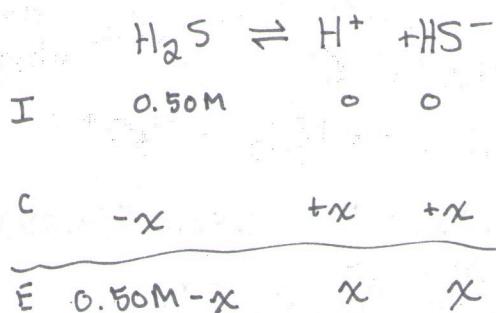 H₂S ⇌ H⁺ + HS⁻
I 0.50M 0 0
C -x +x +x
E 0.50M-x x x